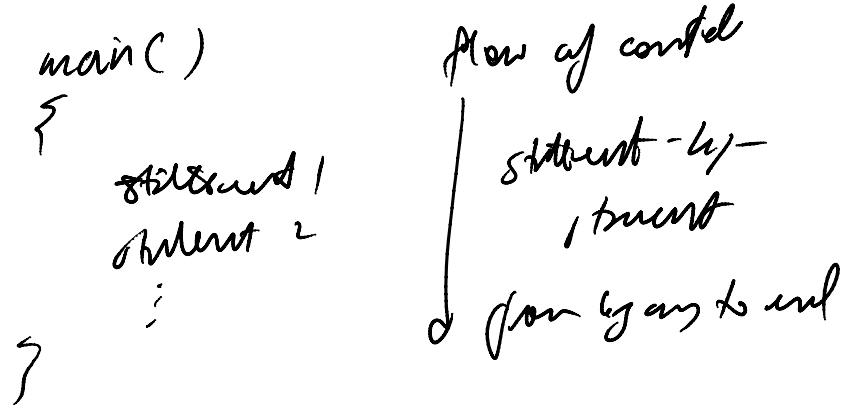 main( )
{
statement 1
statement 2
⋮
}
flow of control
statement-by-
statement
from beginning to end